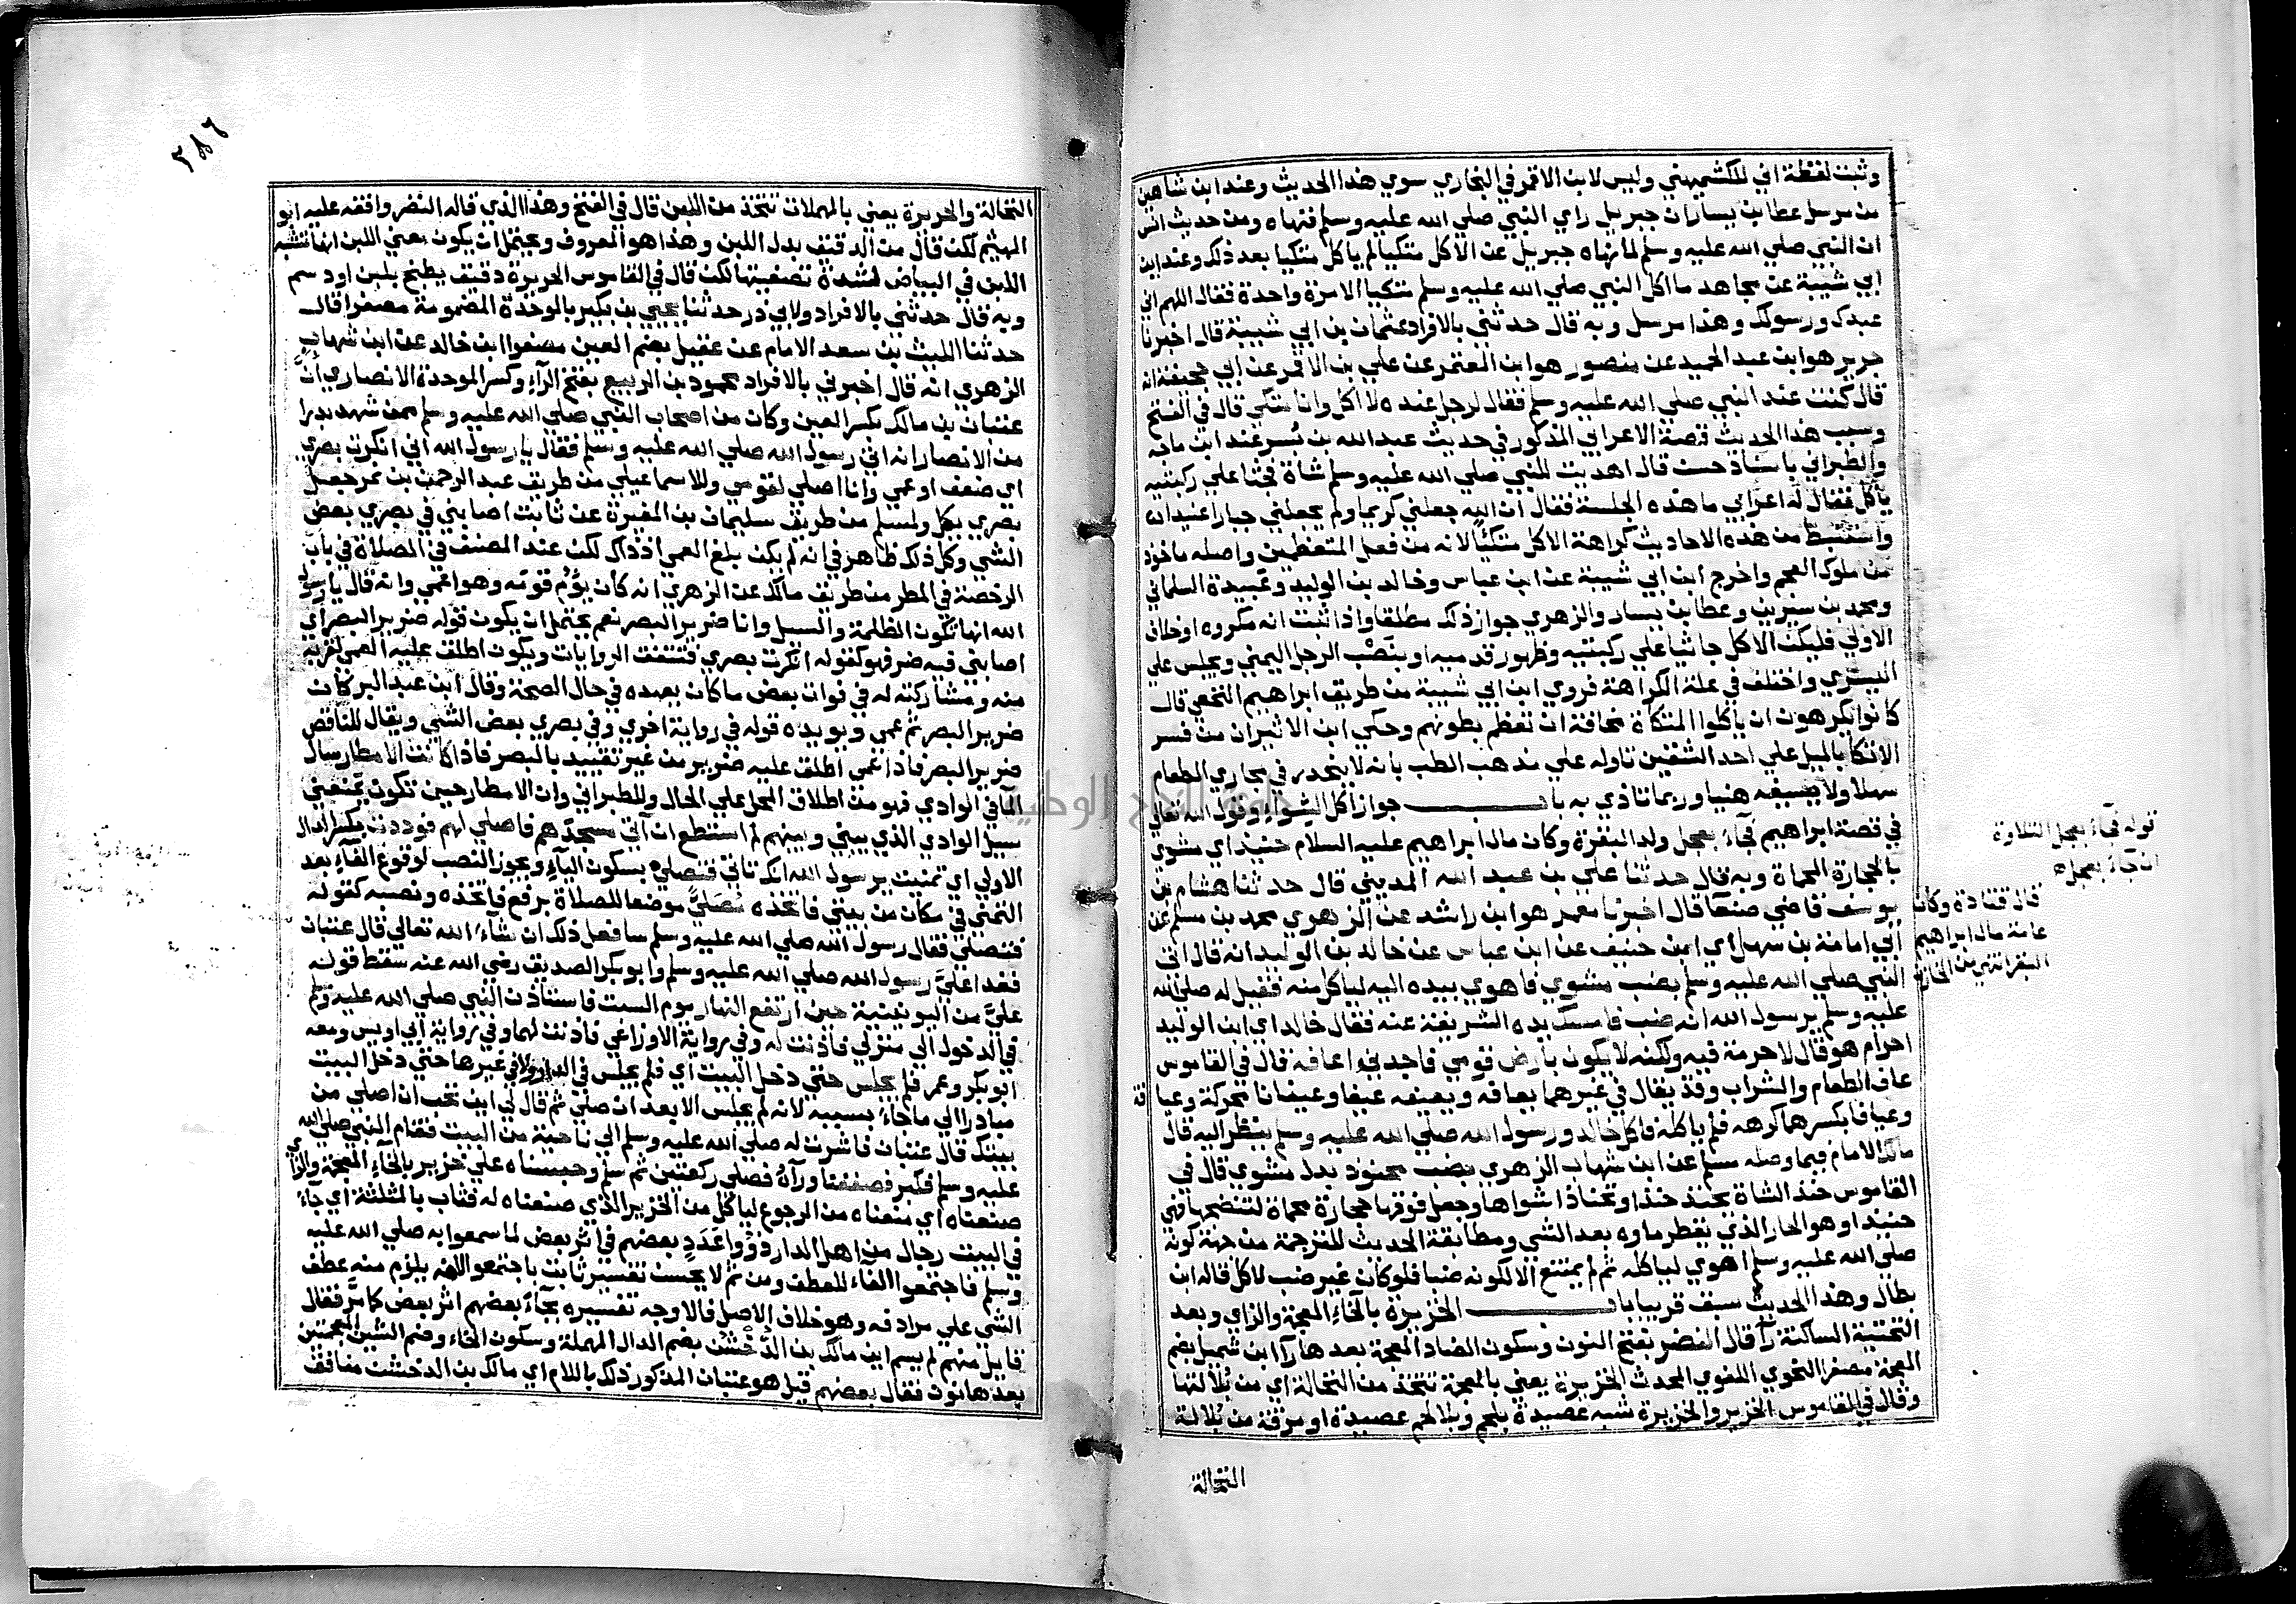 وثبت لفظة اني للكشميهني وليس لابن الاقمر في البخاري سوي هذا الحديث وعند ابن شاهين
من مرسل عطا بن يسار ان جبريل راي النبي صلي الله عليه وسلم فنهاه ومن حديث انس
ان النبي صلي الله عليه وسلم لما نهاه جبريل عن الاكل متكيا لم ياكل متكيا بعد ذلك وعند ابن
ابي شيبة عن مجاهد ما اكل النبي صلي الله عليه وسلم متكيا الا مرة واحدة فقال اللهم اني
عبدك ورسولك وهذا مرسل وبه قال حدثني بالافراد عثمان بن ابي شيبة قال اخبرنا
جرير هو ابن عبد الحميد عن منصور هو ابن المعتمر عن علي بن الاقمر عن ابي جحيفة انه
قال كنت عند النبي صلي الله عليه وسلم فقال لرجل عنده لا اكل وانا متكي قال في الفتح
وسبب هذا الحديث قصة الاعرابي المذكور في حديث عبد الله بن بُسر عند ابن ماجه
والطبراني باسناد حسن قال اهديت للنبي صلي الله عليه وسلم شاة فجثا علي ركبتيه
ياكل فقال له اعرابي ما هذه الجلسة فقال ان الله جعلني كريما ولم يجعلني جبارا عنيدا
واستنبط من هذه الاحاديث كراهة الاكل متكئا لانه من فعل المتعظمين واصله ماخوذ
من ملوك العجم واخرج ابن ابي شيبة عن ابن عباس وخالد بن الوليد وعبيدة السلماني
ومحمد بن سيرين وعطا بن يسار والزهري جواز ذلك مطلقا واذا ثبت انه مكروه او خلاف
الاولي فليكن الاكل جاثيا علي ركبتيه وظهور قدميه او ينصب الرجل اليمني ويجلس علي
اليسري واختلف في علة الكراهة فروي ابن ابي شيبة من طريق ابراهيم النخعي قال
كانوا يكرهون ان ياكلوا المتكأة مخافة ان تعظم بطونهم وحكي ابن الاثير ان من فسر
الاتكا بالميل علي احد الشقين تاوله علي مذهب الطب بانه لا ينحدر في مجاري الطعام
سهلا ولا يسيغه هنيا وربما تاذي به باب جواز اكل الشواء وقول الله تعالي
في قصة ابراهيم فجآء بعجل ولد البقرة وكان مال ابراهيم عليه السلام حنيذ اي مشوي
بالحجارة المحماة وبه قال حدثنا علي بن عبد الله المديني قال حدثنا هشام بن
يوسف قاضي صنعآ قال اخبرنا معمر هو ابن راشد عن الزهري محمد بن مسلم عن
ابي امامة بن سهل اي ابن حنيف عن ابن عباس عن خالد بن الوليد انه قال اتي
النبي صلي الله عليه وسلم بضب مشوي فاهوي بيده اليه لياكل منه فقيل له صلي الله
عليه وسلم يرسول الله انه ضب فامسك يده الشريفة عنه فقال خالد اي ابن الوليد
احرام هو قال لا حرمة فيه ولكنه لا يكون بارض قومي فاجدني اعافه قال في القاموس
عاف الطعام والشراب وقد يقال في غيرهما يعافه ويعيفه عيفا وعيفانا محركة وعيافة
وعيافا بكسرهما كرهه فلم ياكله فاكل خالد ورسول الله صلي الله عليه وسلم ينظر اليه قال
مالك الامام فيما وصله مسلم عن ابن شهاب الزهري بضب محنوذ بدل مشوي قال في
القاموس حنذ الشاة يحنذ حنذا وتحناذا شواها وجعل فوقها حجارة محماة لتنضجها فهي
حنيذ او هو الحار الذي يقطر ماوه بعد الشي ومطابقة الحديث للترجمة من جهة كونه
صلي الله عليه وسلم اهوي لياكله ثم لم يمتنع الا لكونه ضبا فلو كان غير ضب لاكل قاله ابن
بطال وهذا الحديث سبق قريبا باب الخزيرة بالخاء المعجمة والزاي وبعد
التحتية الساكنة رآ قال النضر بفتح النون وسكون الضاد المعجمة بعدها رآ ابن شميل بضم
المعجمة مصغرا النحوي اللغوي المحدث الخزيرة يعني بالمعجمة تتخذ من النخالة اي من بلالتها
وقال في القاموس الخزير والخزيرة شبه عصيدة بلحم وبلا لحم عصيدة او مرقة من بلالة
النخالة
قوله فجآء بعجل التلاوة
ان جآء بعجل
قال قتادة وكان
عامة مال ابراهيم
البقر
٣٨٦
النخالة والحريرة يعني بالمهملات تتخذ من اللبن قال في الفتح وهذا الذي قاله النضر وافقه عليه ابو
الهيثم لكن قال من الدقيق بدل اللبن وهذا هو المعروف ويحتمل ان يكون يعني اللبن انها تشبه
اللبن في البياض لشدة تصفيتها لكن قال في القاموس الحريرة دقيق يطبخ بلبن او دسم
وبه قال حدثني بالافراد ولابي ذر حدثنا يحيي بن بكير بالوحدة المضمومة مصغرا قال
حدثنا الليث بن سعد الامام عن عقيل بضم العين مصغرا ابن خالد عن ابن شهاب
الزهري انه قال اخبرني بالافراد محمود بن الربيع بفتح الراء وكسر الموحدة الانصاري ان
عتبان بن مالك بكسر العين وكان من اصحاب النبي صلي الله عليه وسلم ممن شهد بدرا
من الانصار انه اتي رسول الله صلي الله عليه وسلم فقال يا رسول الله اني انكرت بصري
اي ضعف او عمي وانا اصلي لقومي وللاسماعيلي من طريق عبد الرحمن بن نمر جعل
بصري يكل ولمسلم من طريق سليمان بن المغيرة عن ثابت اصابني في بصري بعض
الشي وكل ذلك ظاهر في انه لم يكن بلغ العمي اذ ذاك لكن عند المصنف في الصلاة في باب
الرخصة في المطر من طريق مالك عن الزهري انه كان يؤم قومه وهو اعمي وانه قال يا رسول
الله انها تكون الظلمة والسيل وانا ضرير البصر نعم يحتمل ان يكون قوله ضرير البصر اي
اصابني فيه ضر فهو كقوله انكرت بصري فتتفق الروايات ويكون اطلق عليه العمي لقربه
منه ومشاركته له في فوات بعض ما كان يعهده في حال الصحة وقال ابن عبد البر كان
ضرير البصر ثم عمي ويويده قوله في رواية اخري وفي بصري بعض الشي ويقال للناقص
ضرير البصر فاذا عمي اطلق عليه ضرير من غير تقييد بالبصر فاذا كانت الامطار سال
المآ في الوادي فهو من اطلاق المحل علي الحال وللطبراني وان الامطار حين تكون يمنعني
سيل الوادي الذي بيني وبينهم لم استطع ان آتي مسجدهم فاصلي لهم فوددت بكسر الدال
الاولي اي تمنيت يرسول الله انك تاتي فتصلي بسكون الياء ويجوز النصب لوقوع الفآء بعد
التمني في مكان من بيتي فاتخذه مصليً موضعا للصلاة برفع فاتخذه ونصبه كقوله
فتصلي فقال رسول الله صلي الله عليه وسلم سافعل ذلك ان شآء الله تعالي قال عتبان
فغدا عليَّ رسول الله صلي الله عليه وسلم وابو بكر الصديق رضي الله عنه سقط قوله
عليَّ من اليونينية حين ارتفع النهار يوم السبت فاستاذن النبي صلي الله عليه وسلم
في الدخول الي منزلي فاذنت له وفي رواية الاوزاعي فاذنت لهما وفي رواية ابي اويس ومعه
ابو بكر وعمر فلم يجلس حتي دخل البيت اي فلم يجلس في الدار ولا في غيرها حتي دخل البيت
مبادرا الي ما جاء بسببه لانه لم يجلس الا بعد ان صلي ثم قال لي اين تحب ان اصلي من
بيتك قال عتبان فاشرت له صلي الله عليه وسلم الي ناحية من البيت فقام النبي صلي الله
عليه وسلم فكبر فصففنا ورآه فصلي ركعتين ثم سلم وحبسناه علي خزير بالخاء المعجمة والزاي
صنعناه اي منعناه من الرجوع لياكل من الخزير الذي صنعناه له فثاب بالمثلثة اي جآء
في البيت رجال من اهل الدار ذووا عَدَدٍ بعضهم في اثر بعض لما سمعوا به صلي الله عليه
وسلم فاجتمعوا الفآء للعطف ومن ثم لا يحسن تفسير ثابت باجتمعوا لانه يلزم منه عطف
الشي علي مرادفه وهو خلاف الاصل فالاوجه تفسيره بجآء بعضهم اثر بعض كما مر فقال
قايل منهم لم يسم اين مالك بن الدُّخْشُن بضم الدال المهملة وسكون الخاء وضم الشين المعجمتين
بعدها نون فقال بعضهم قيل هو عتبان المذكور ذلك باللام اي مالك بن الدخشن منافق